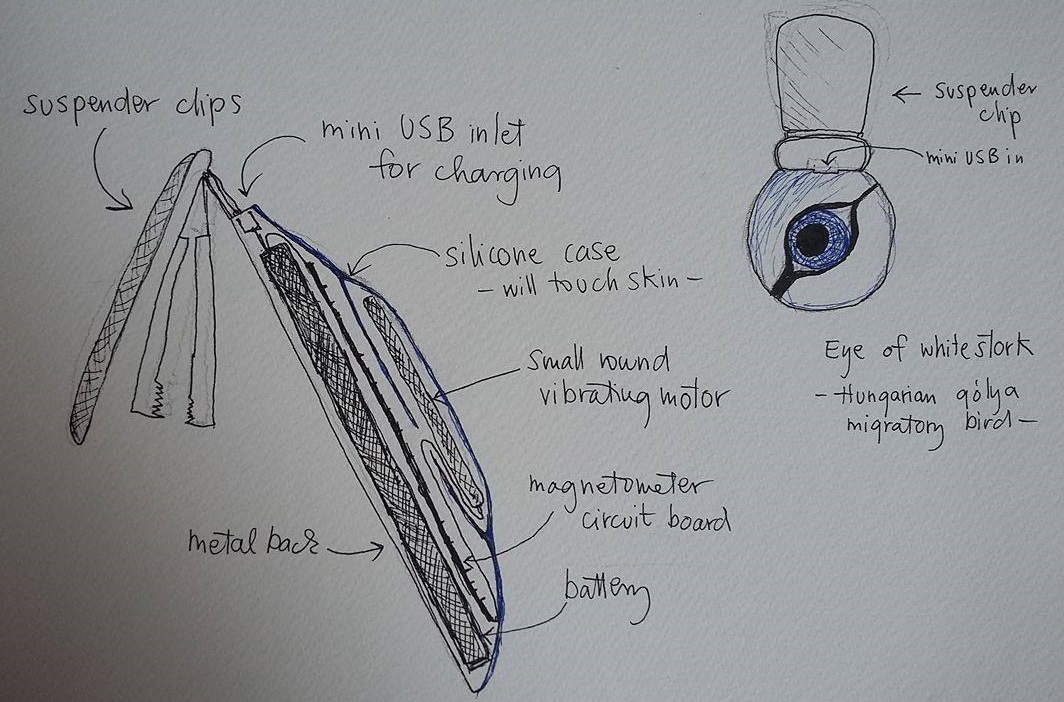 suspender clips
mini USB inlet
for charging
silicone case
- will touch skin -
small round
vibrating motor
magnetometer
circuit board
metal back
battery
suspender
chip
mini USB in
Eye of white stork
- Hungarian gólya
migratory bird -